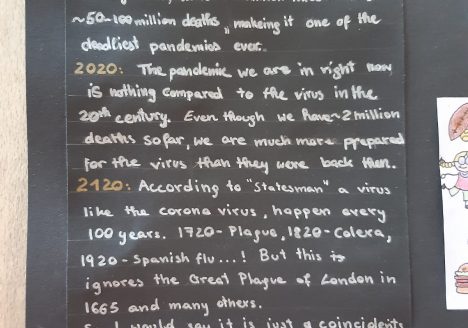 ~50-100 million deaths, makeing it one of the
deadliest pandemics ever.
2020: The pandemic we are in right now
is nothing compared to the virus in the
20th century. Even though we have ~2 million
deaths so far, we are much more prepared
for the virus than they were back then.
2120: According to "Statesman" a virus
like the corona virus, happen every
100 years. 1720- Plague, 1820- Colera,
1920- Spanish flu...! But this is
ignores the Great Plague of London in
1665 and many others.
I would say it is just a coincidents